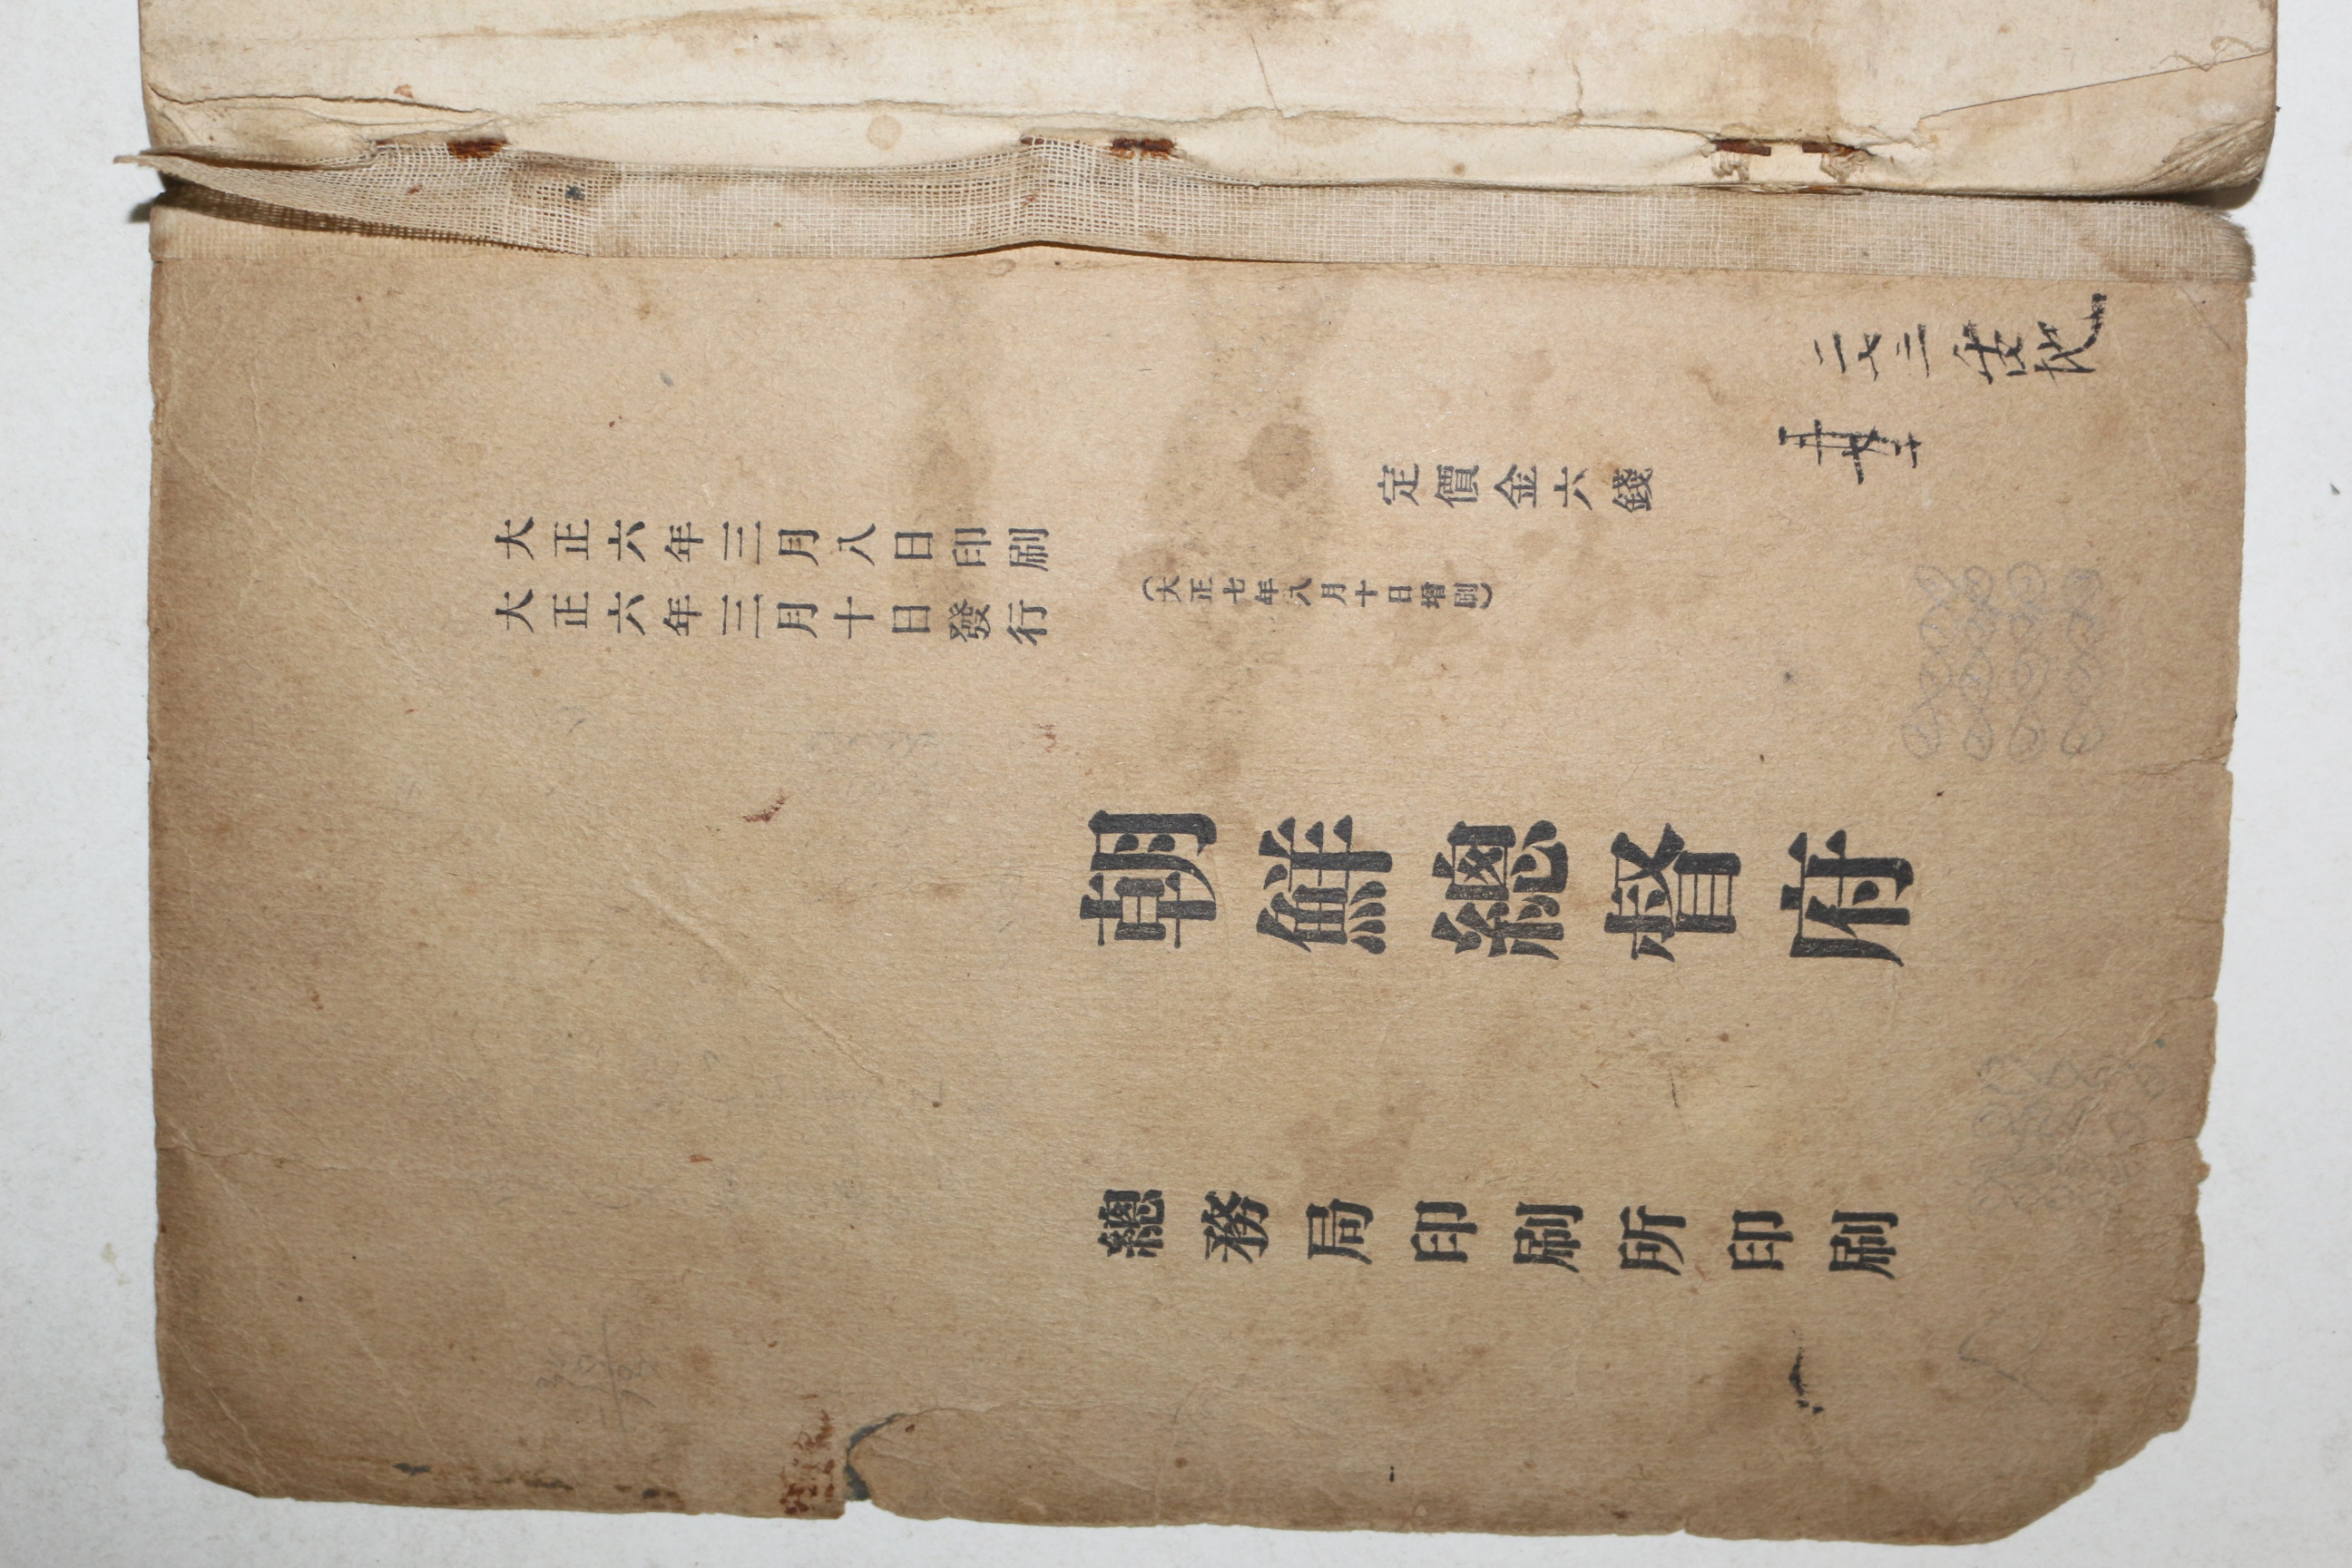 二七三
地
定價金六錢
大正六年三月八日印刷
大正六年三月十日發行
(大正七年八月十日增刷)
朝鮮總督府
總務局印刷所印刷